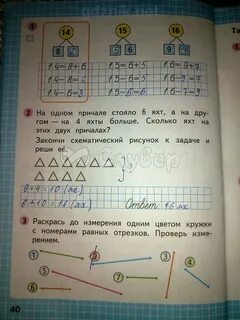 14 15 16
8 6 6 9 7
14=8+6 15=6+9 16=9+7
14-6=8 15-9=6 16-9=7
14-8=6 15-6=9 16-7=9
2 На одном причале стояло 6 яхт, а на дру-
гом — на 4 яхты больше. Сколько яхт на
этих двух причалах?
Закончи схематический рисунок к задаче и
реши её.
6+4=10 (ях.)
6+10=16 (ях.) Ответ: 16 ях.
3 Раскрась до измерения одним цветом кружки
с номерами равных отрезков. Проверь изме-
рением.
1 2 3
4 5
7 6
40